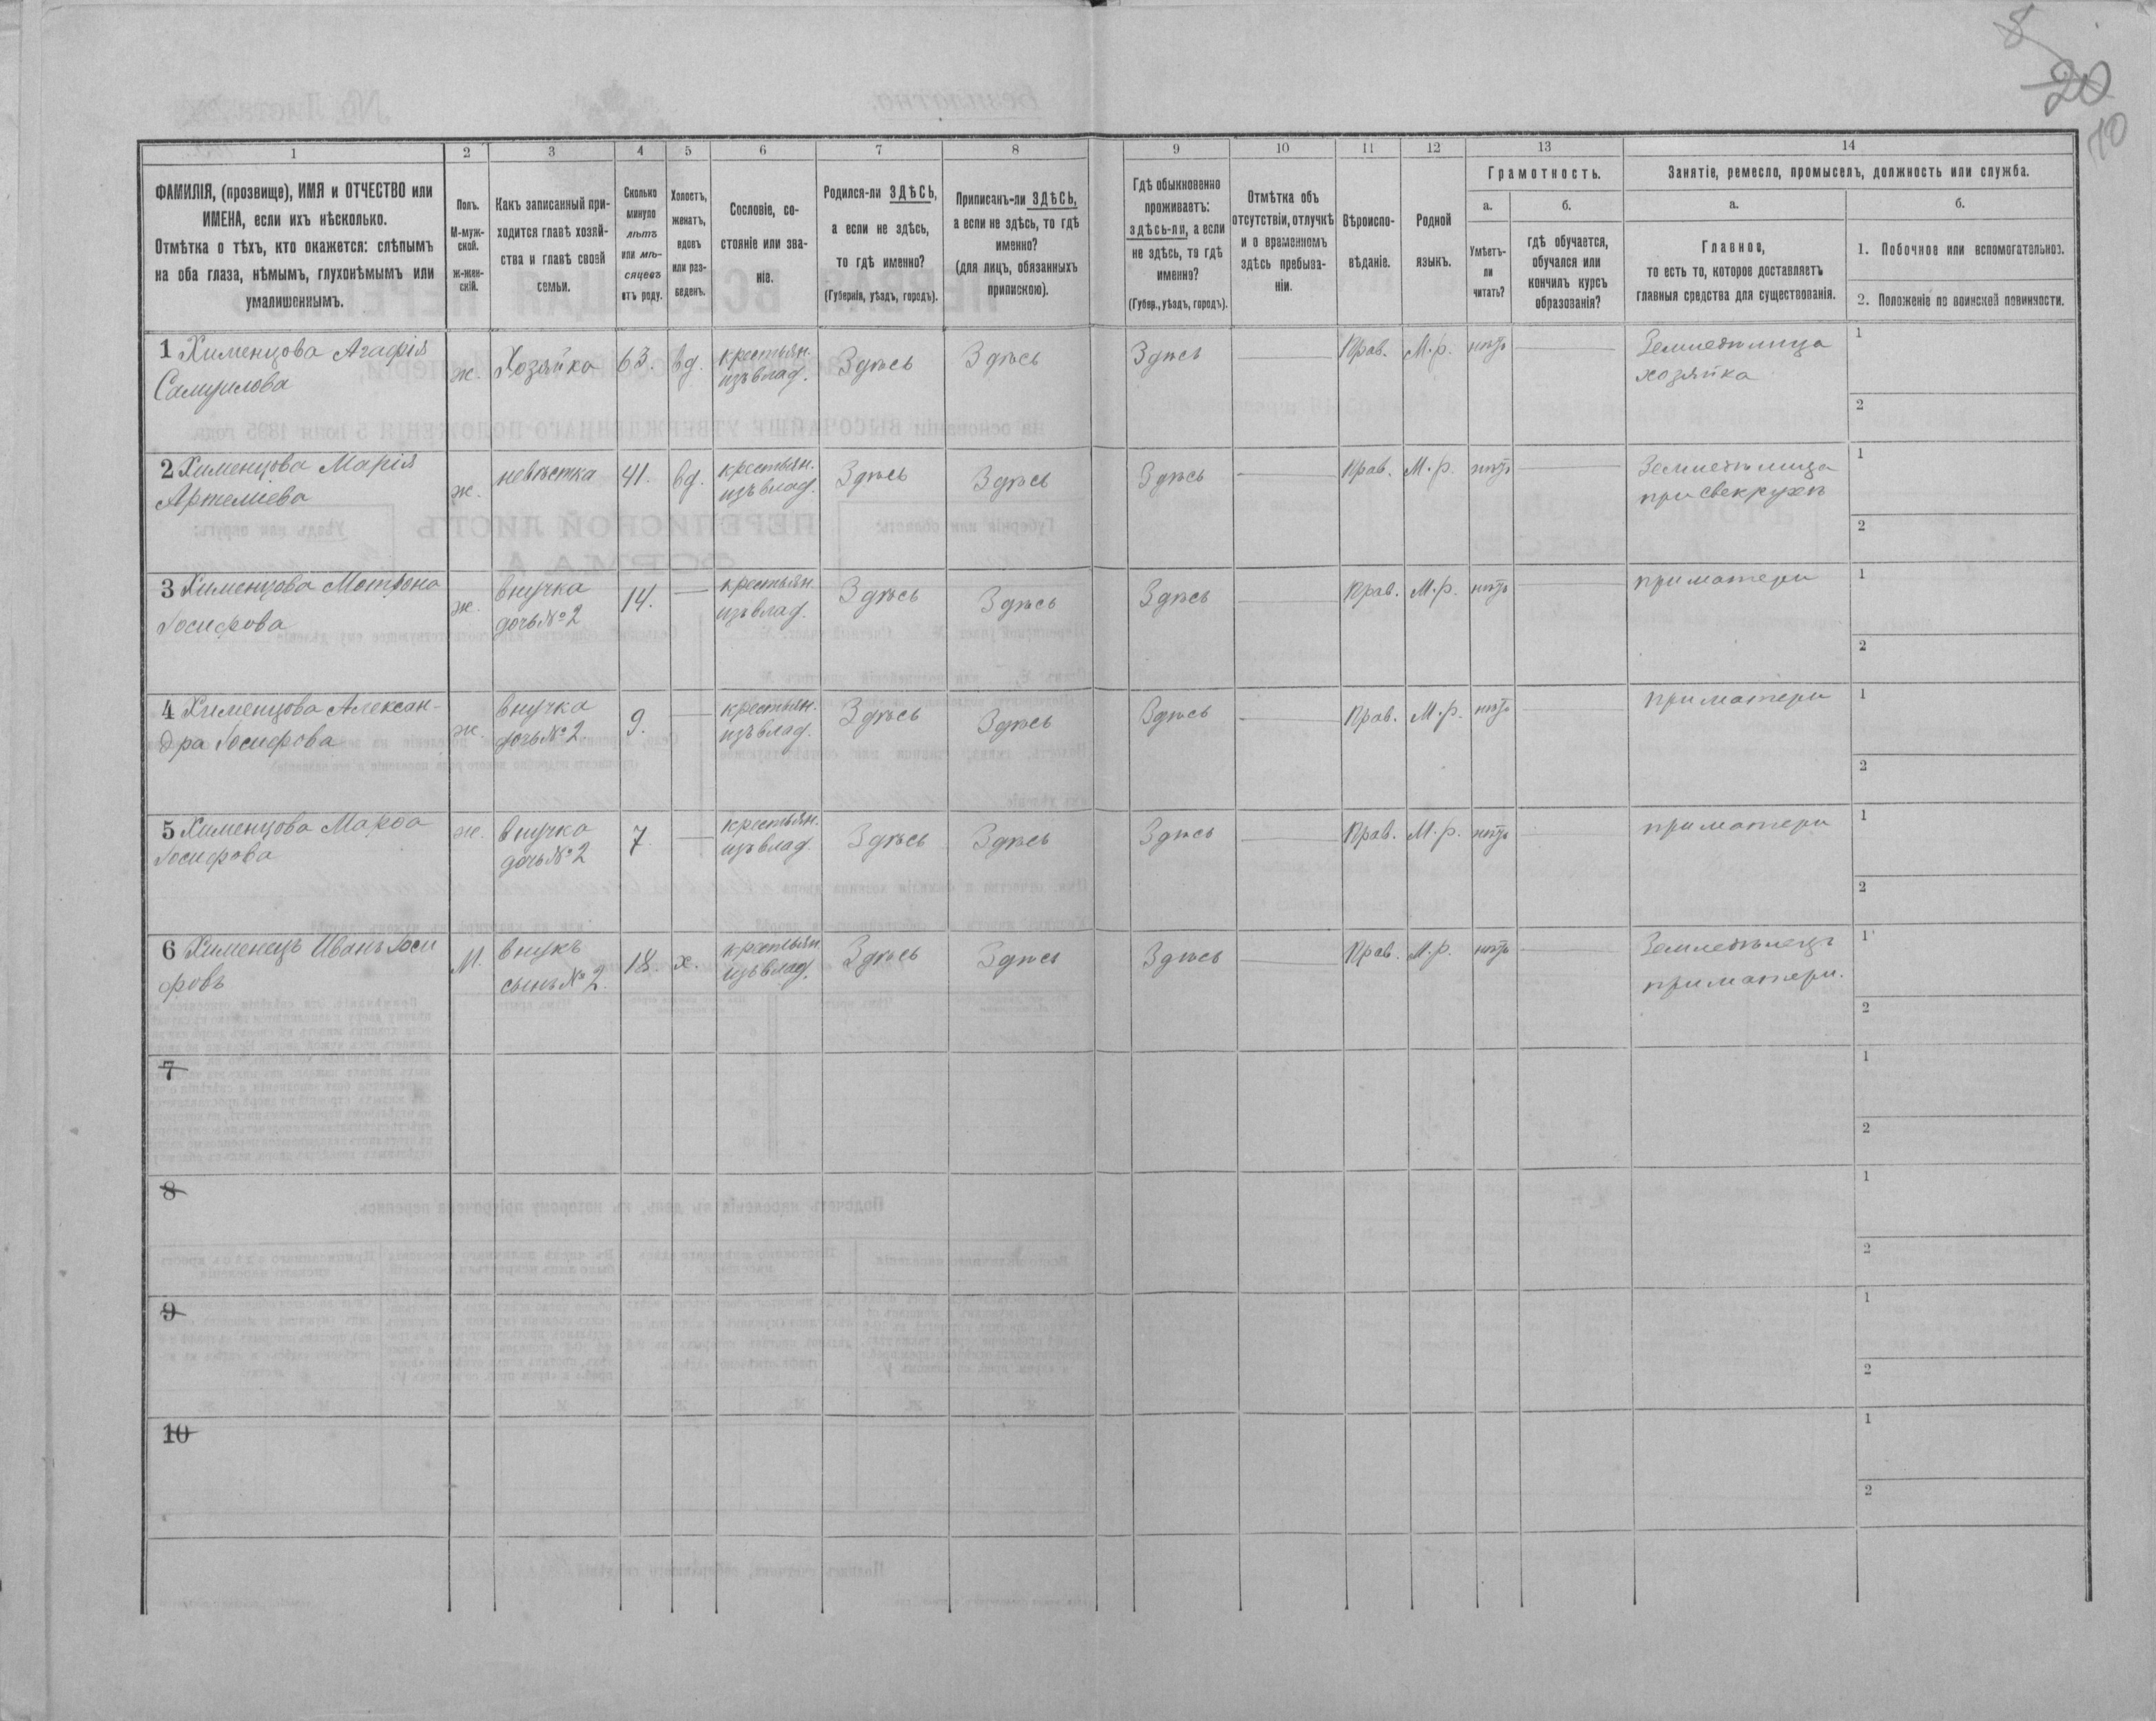 8
20
10
1 2 3 4 5 6 7 8 9 10 11 12 13 14
ФАМИЛІЯ, (прозвище), ИМЯ и ОТЧЕСТВО или
ИМЕНА, если ихъ нѣсколько.
Отмѣтка о тѣхъ, кто окажется: слѣпымъ
на оба глаза, нѣмымъ, глухонѣмымъ или
умалишеннымъ.
Полъ.
М-муж-
ской.
ж-жен-
скій.
Какъ записанный при-
ходится главѣ хозяй-
ства и главѣ своей
семьи.
Сколько
минуло
лѣтъ
или мѣ-
сяцевъ
отъ роду.
Холостъ,
женатъ,
вдовъ
или раз-
веденъ.
Сословіе, со-
стояніе или зва-
ніе.
Родился-ли ЗДѢСЬ,
а если не здѣсь,
то гдѣ именно?
(Губернія, уѣздъ, городъ).
Приписанъ-ли ЗДѢСЬ,
а если не здѣсь, то гдѣ
именно?
(для лицъ, обязанныхъ
припискою).
Гдѣ обыкновенно
проживаетъ:
здѣсь-ли, а если
не здѣсь, то гдѣ
именно?
(Губер., уѣздъ, городъ).
Отмѣтка объ
отсутствіи, отлучкѣ
и о временномъ
здѣсь пребыва-
ніи.
Вѣроиспо-
вѣданіе.
Родной
языкъ.
Грамотность.
а.
Умѣетъ-
ли
читать?
б.
гдѣ обучается,
обучался или
кончилъ курсъ
образованія?
Занятіе, ремесло, промыселъ, должность или служба.
а.
Главное,
то есть то, которое доставляетъ
главныя средства для существованія.
б.
1. Побочное или вспомогательное.
2. Положеніе по воинской повинности.
1 Хименцова Агафія
Самуилова
ж.
Хозяйка
63.
вд.
крестьян.
изъ влад.
Здѣсь
Здѣсь
Здѣсь
Прав.
М.р.
нѣтъ
Земледѣлица
хозяйка
1
2
2 Хименцова Марія
Артеміева
ж.
невѣстка
41.
вд.
крестьян.
изъ влад.
Здѣсь
Здѣсь
Здѣсь
Прав.
М.р.
нѣтъ
Земледѣлица
при свекрухѣ
1
2
3 Хименцова Мотрона
Іосифова
ж.
внучка
дочь № 2
14.
крестьян.
изъ влад.
Здѣсь
Здѣсь
Здѣсь
Прав.
М.р.
нѣтъ
при матери
1
2
4 Хименцова Алексан-
дра Іосифова
ж.
внучка
дочь № 2
9.
крестьян.
изъ влад.
Здѣсь
Здѣсь
Здѣсь
Прав.
М.р.
нѣтъ
при матери
1
2
5 Хименцова Марѳа
Іосифова
ж.
внучка
дочь № 2
7
крестьян.
изъ влад.
Здѣсь
Здѣсь
Здѣсь
Прав.
М.р.
нѣтъ
при матери
1
2
6 Хименецъ Иванъ Іоси
фовъ
М.
внукъ
сынъ № 2.
18.
х.
крестьян
изъ влад.
Здѣсь
Здѣсь
Здѣсь
Прав.
М.р.
нѣтъ
Земледѣлецъ
при матери.
1
2
7
1
2
8
1
2
9
1
2
10
1
2